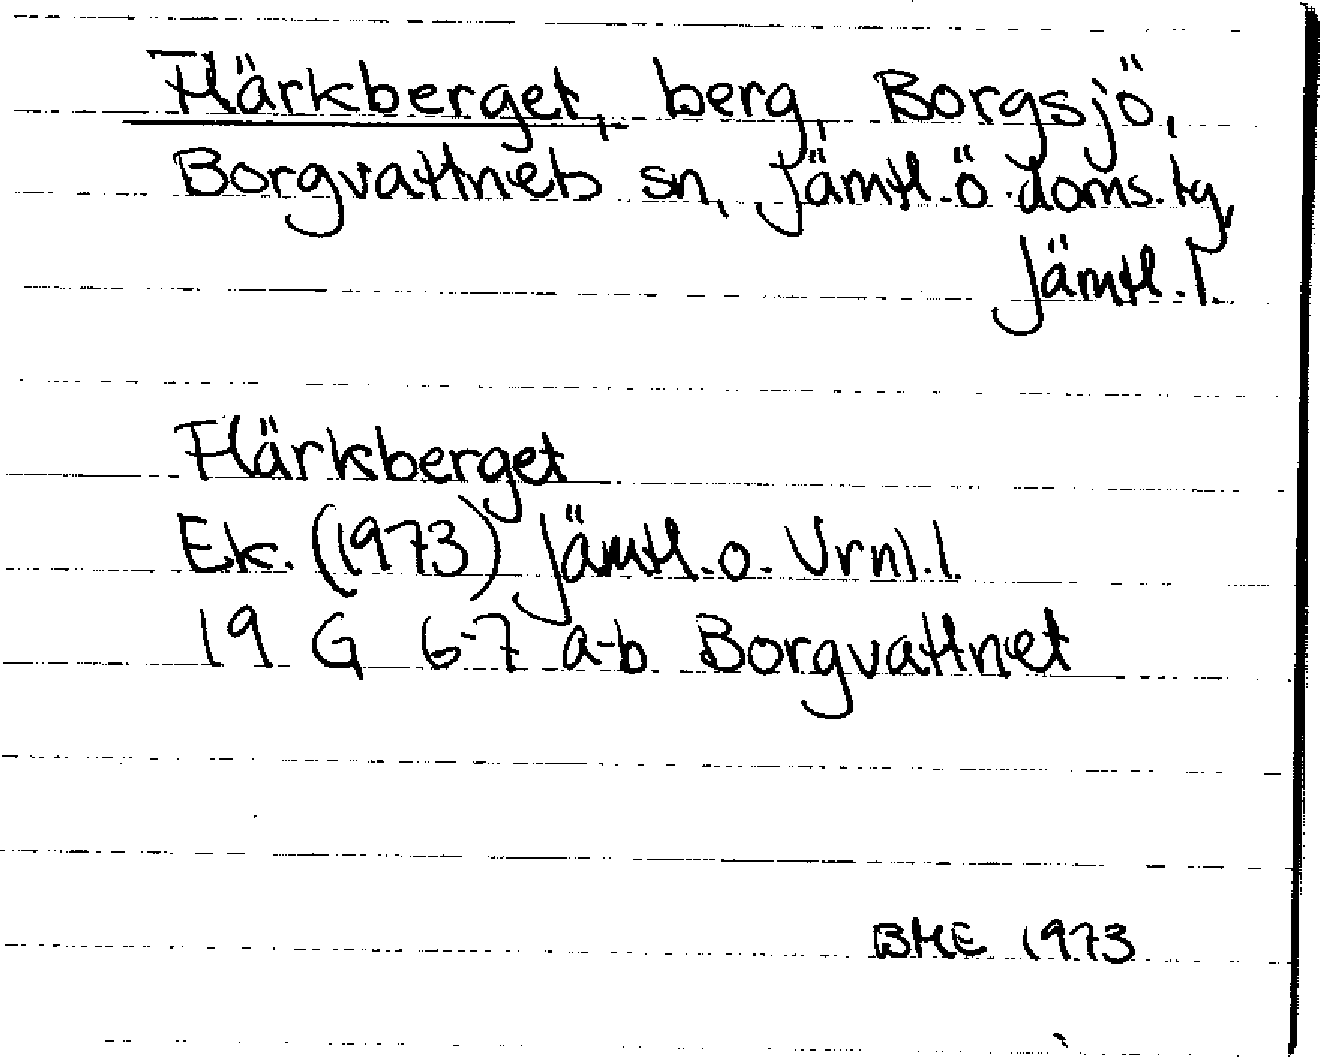 Flärkberget, berg, Borgsjö,
Borgvattnets sn, Jämtl. ö. doms. tg,
Jämtl. l.
Flärkberget
Ek. (1973) Jämtl. o. Vrnl. l.
19 G 6-7 a-b Borgvattnet
BME 1973